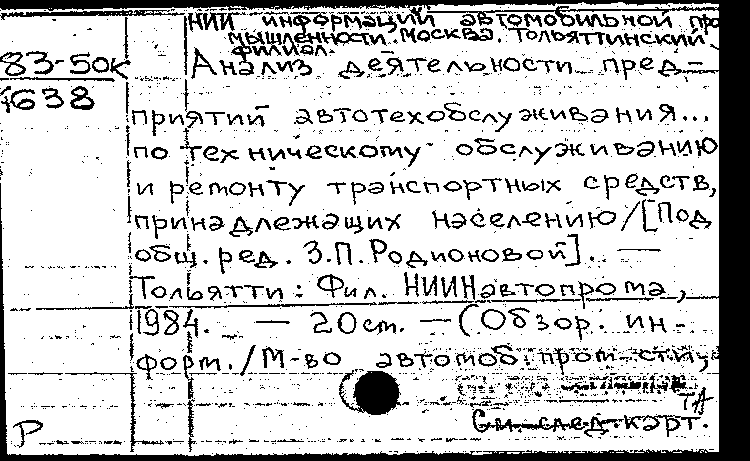 НИИ информации автомобильной про
мышленности. Москва. Тольяттинский
филиал.
83-50к
638
Анализ деятельности пред-
приятий автотехобслуживания...
по техническому обслуживанию
и ремонту транспортных средств,
принадлежащих населению/[Под
общ. ред. З.П. Родионовой]. —
Тольятти: Фил. НИИНавтопрома,
1984. — 20 ст. — (Обзор. ин-
форм./М-во автомоб. пром-сти,
ТА
См. след. карт.
Р